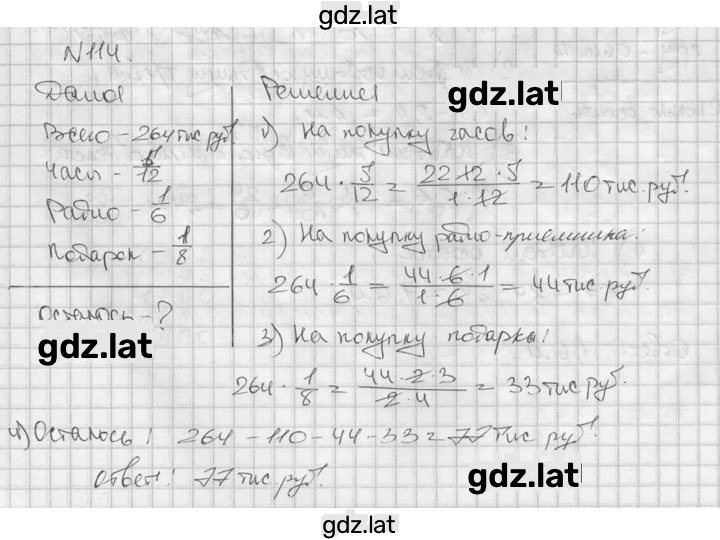 gdz.lat
N114.
Дано
Всего - 264 тыс руб
Часы - 5/12
Радио - 1/6
Подарок - 1/8
осталось - ?
gdz.lat
Решение
gdz.lat
1) На покупку часов:
264 · 5/12 = 22·12·5/1·12 = 110 тыс. руб.
2) На покупку радио-приемника:
264 · 1/6 = 44·6·1/1·6 = 44 тыс. руб.
3) На покупку подарка:
264 · 1/8 = 44·2·3/2·4 = 33 тыс руб.
4) Осталось: 264 - 110 - 44 - 33 = 77 тыс руб.
ответ: 77 тыс. руб.
gdz.lat
gdz.lat